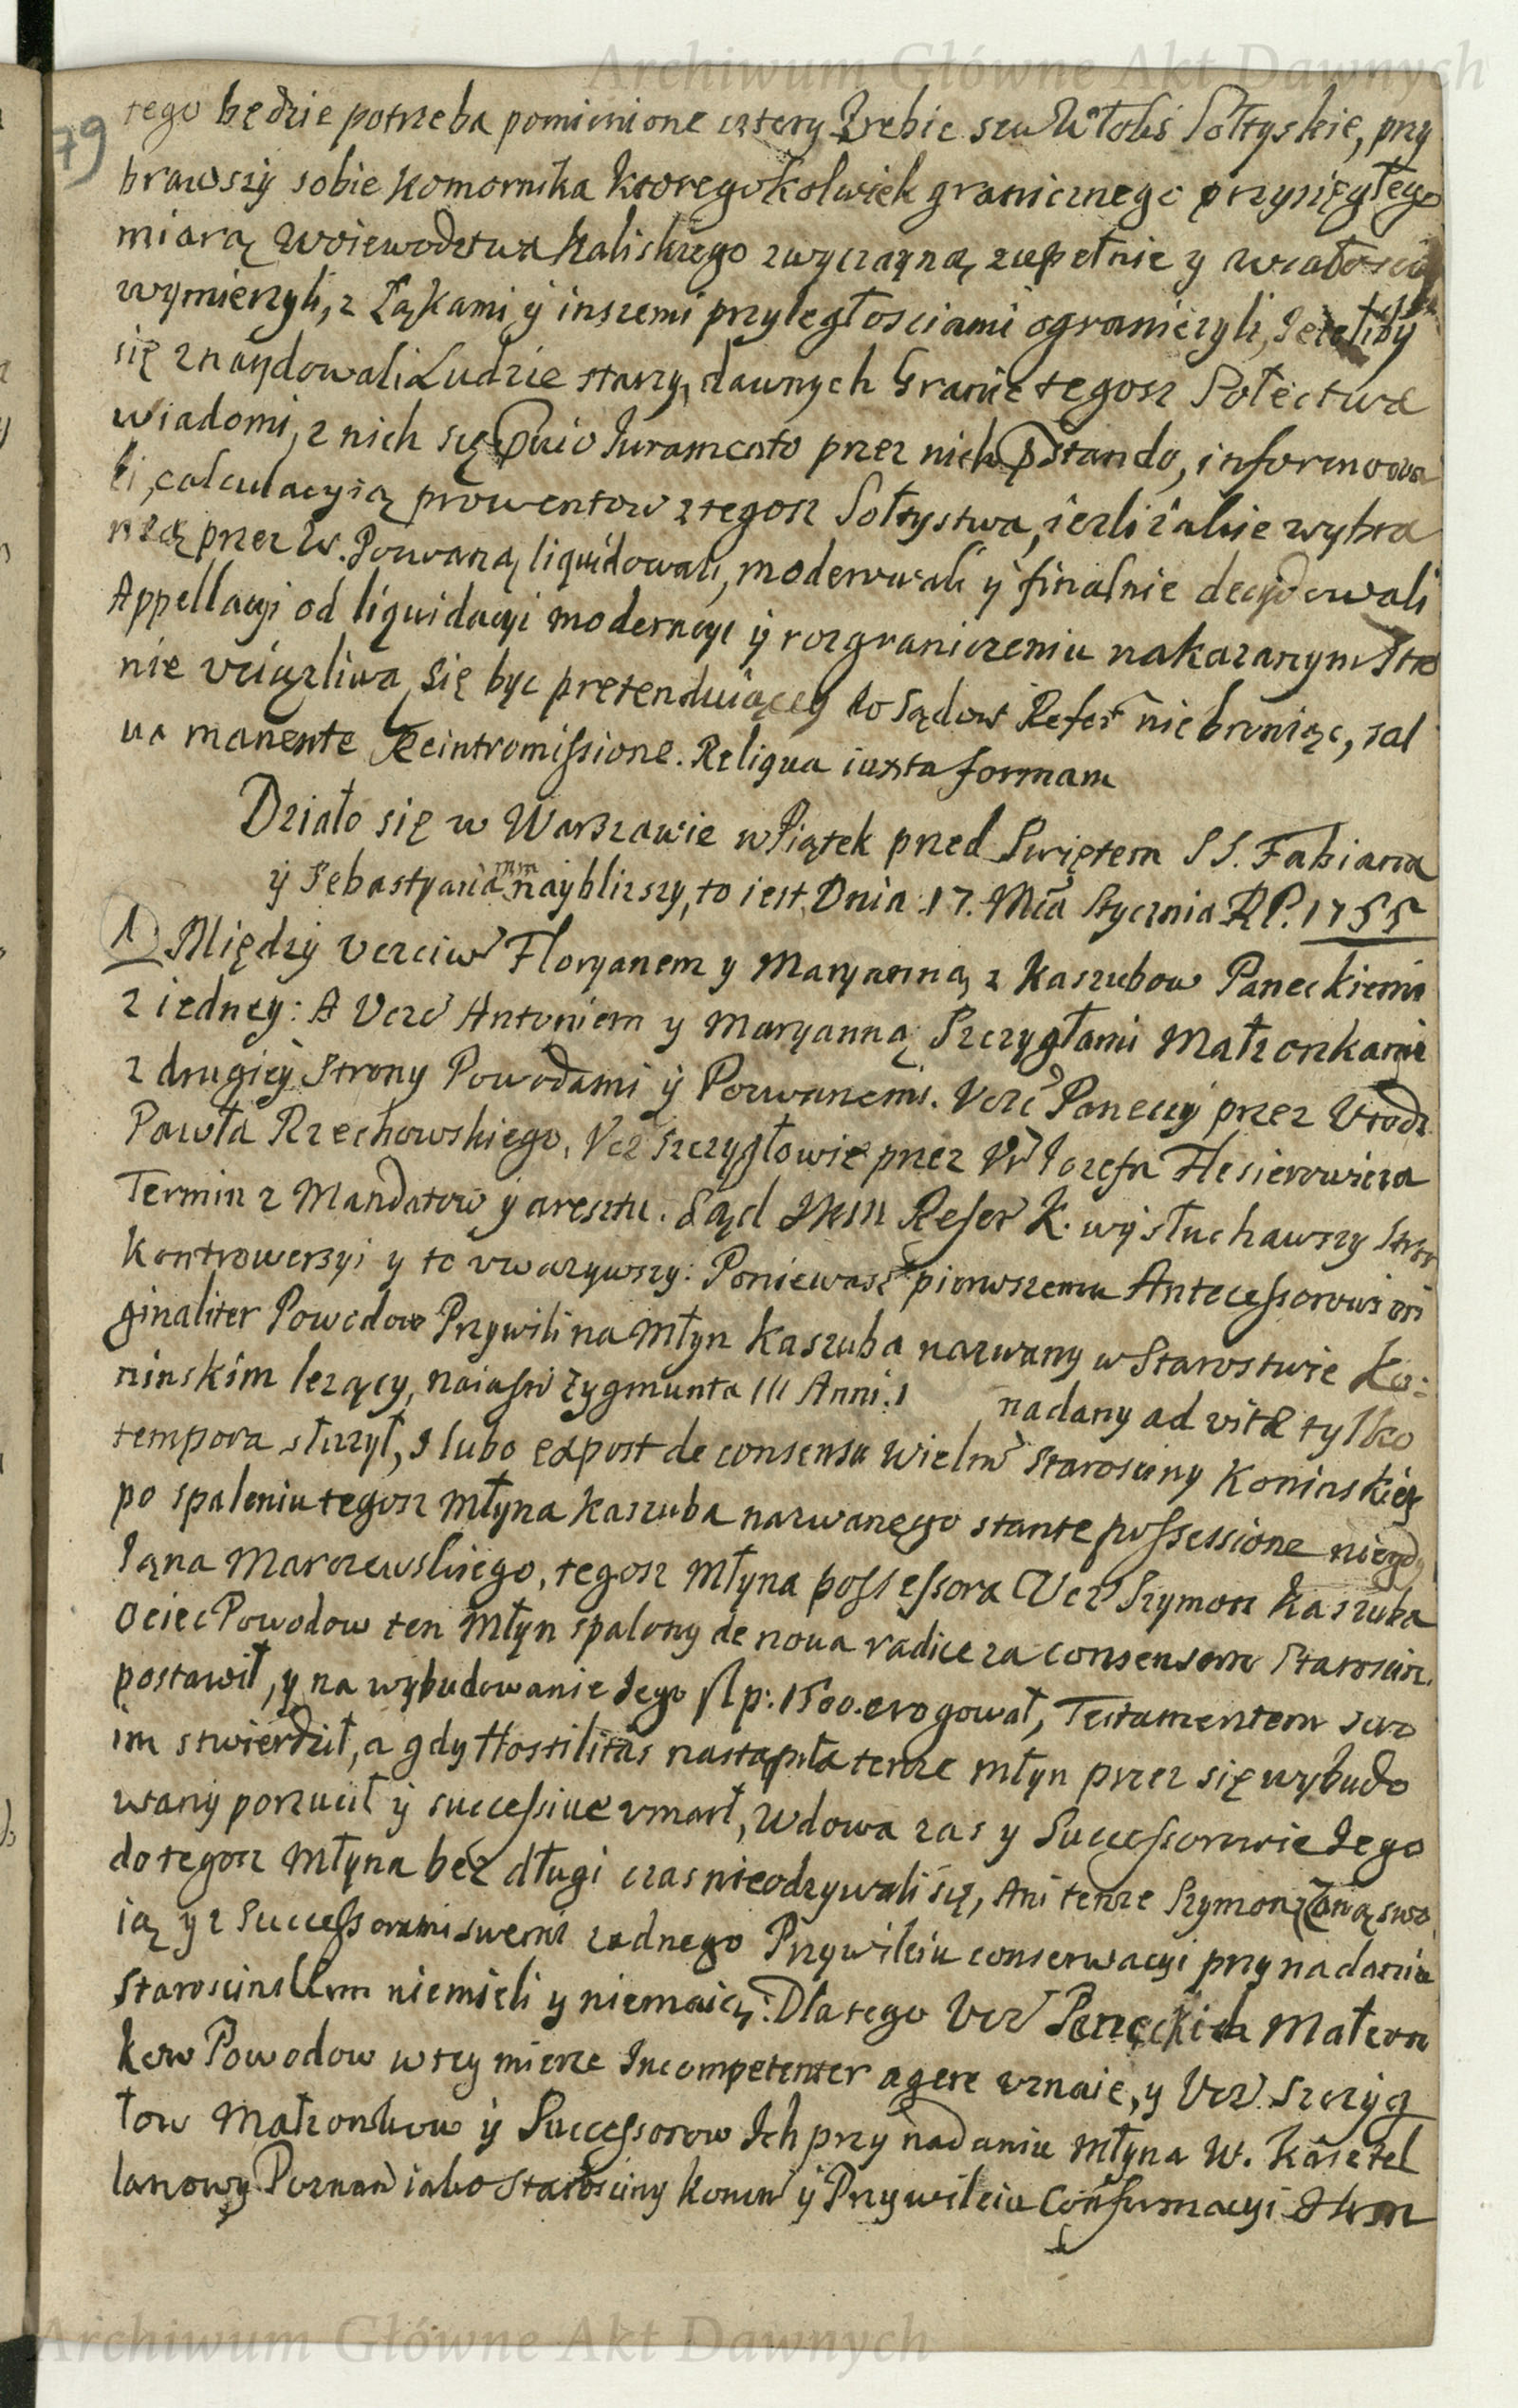 Archiwum Główne Akt Dawnych
79
tego będzie potrzeba pomienione cztery Zrebie seu Włoki Sołtyskie, przy
brawszy sobie Komornika ktoregokolwiek granicznego przysięgłego
miarą Woiewodztwa Kaliskiego zwyczayną, zupełnie y wcałości
wymierzyli, z Łąkami ÿ inszemi przyległosciami ograniczyli, Jeżeliby
się znaydowali Ludzie starzy, dawnych Granic tegosz Sołectwa
wiadomi, z nich się pvio Juramento przez nich pstando, informowa
li, calculacyią prowentow z tegosz Sołtystwa, ieżli iakie wybra
ne są przez W. Pozwaną liquidowali, moderowali ÿ finalnie decydowali
Appellacyi od liquidacyi moderacyi ÿ rozgraniczeniu nakazanym Stro
nie uciązliwą się byc pretenduiącey do Sądow Refer nie broniąc, sal
va manente Reintromissione. Reliqua iuxta formam
Działo się w Warszawie w Piątek przed Swiętem SS. Fabiana
ÿ Sebastyana nayblizszy, to iest Dnia 17. Mca Stycznia RP. 1755
1 Między Uczciw Floryanem y Maryanną z Kaszubow Paneckiemi
z iedney: A Uczc Antoniem y Maryanną Szczygłami Małzonkami
z drugiey Strony Powodami ÿ Pozwanemi. Uczc Paneccy przez Urodz
Pawła Rzechowskiego, Ucz Szczygłowie przez Ur Jozefa Flesierowicza
Termin z Mandatow ÿ aresztu. Sąd JKM Refer K. wysłuchawszy Stron
Kontrowersyi y to uwazywszy: Poniewasz pierwszemu Antecessorowi ori
ginaliter Powodow Przywili na Młyn Kaszuba nazwany w Starostwie Ko:
ninskim lezący, naiaśn Zygmunta III Anni. 1 nadany ad vitæ tylko
tempora słuzył, I lubo expost de consensu Wielm Starosciny Koninskiey
po spaleniu tegosz Młyna Kaszuba nazwanego stante possessione niegdy
Jana Marszewskiego, tegosz Młyna possessora Ucz Szymon Kaszuba
Ociec Powodow ten Młyn spalony de nova radice za consensem Starościn.
postawił, y na wybudowanie Jego flp: 1500. erogował, Testamentem swo
im stwierdził, a gdy Hostilitas nastąpiła tenze Młyn przez się wybudo
wany porzucił ÿ successive umarł, Wdowa zas y Successorowie Jego
do tegosz Młyna bez długi czas nieodzywali się, Ani tenze Szymon z Zoną swo
ią y z Successorami swemi zadnego Przywileiu conserwacyi przy nadaniu
Starościnskim niemieli y niemaią: Dla tego Ucz Paneckich Małzon
kow Powodow w tey mierze Incompetenter agere uznaie, y Ucz Szczyg
łow Małzonkow ÿ Successorow Ich przy nadaniu Młyna W. Kasztel
lanowy Poznan iako Starosciny Konin ÿ Przywileiu Confirmacyi JKM
Archiwum Główne Akt Dawnych